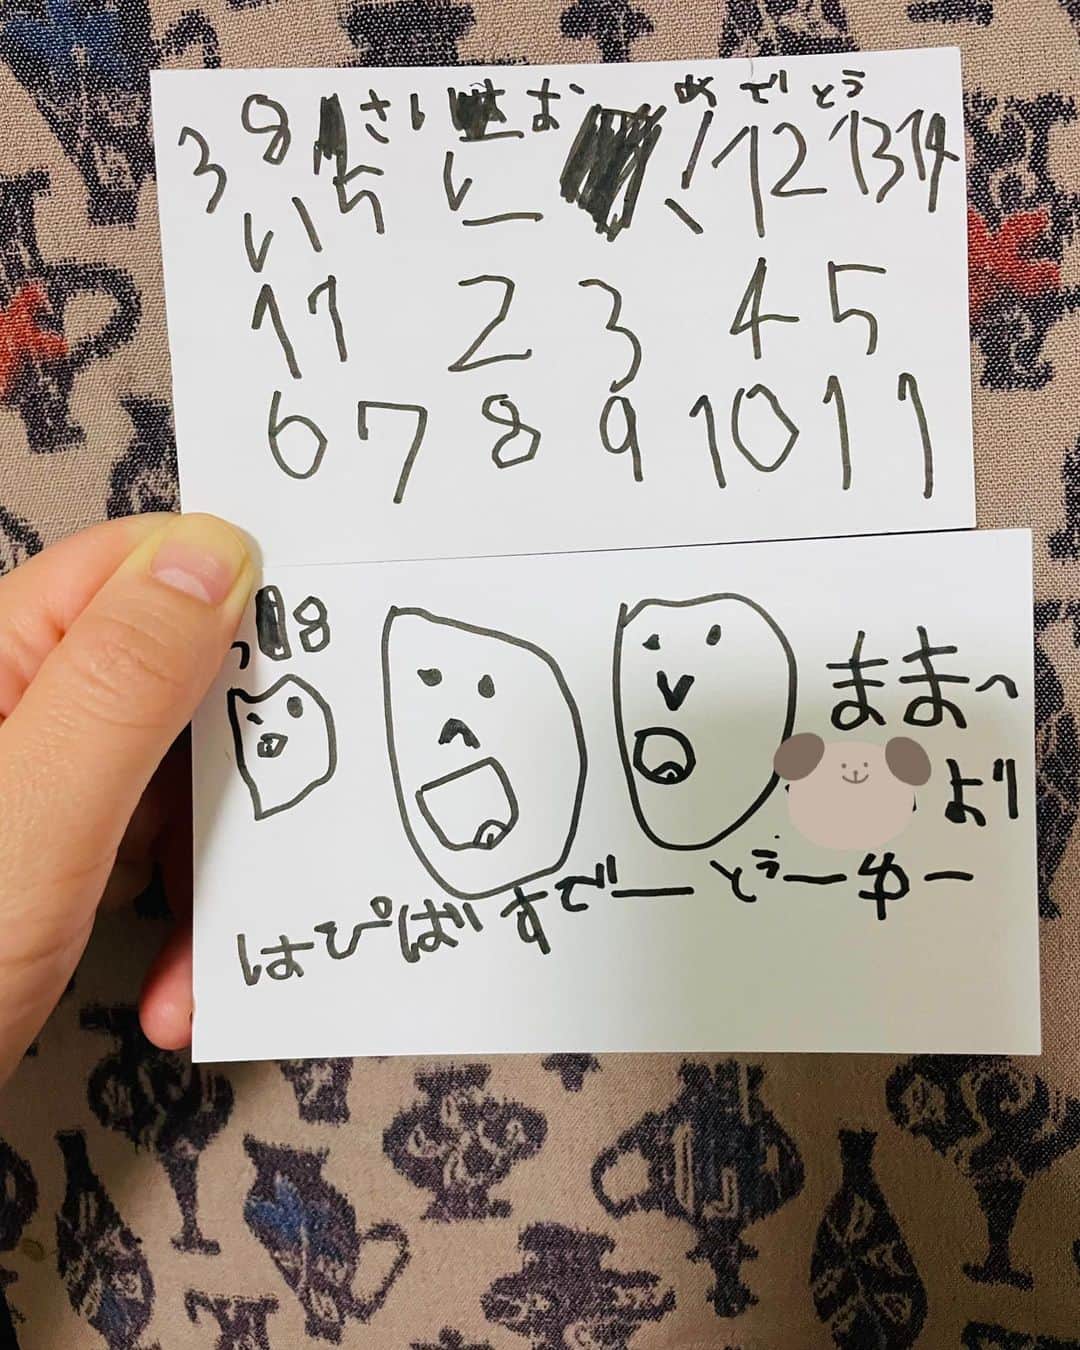 38さい お めでとう
いち ! 12 13 14
11 2 3 4 5
6 7 8 9 10 11
38
ままへ
より
はぴばすでーとぅーゆー